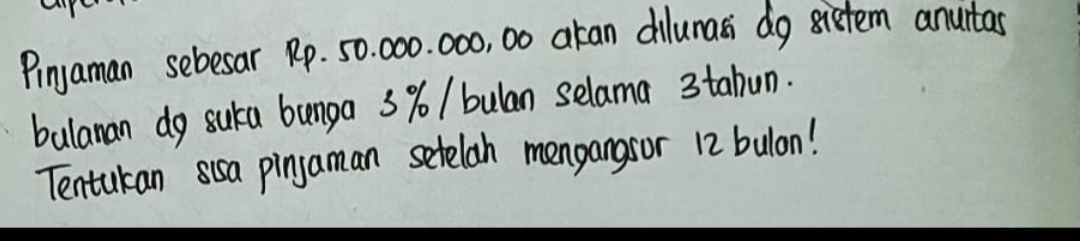 Pinjaman sebesar Rp. 50.000.000,00 akan dilunasi dg sistem anuitas
bulanan dg suku bunga 3%/bulan selama 3 tahun.
Tentukan sisa pinjaman setelah mengangsur 12 bulan!